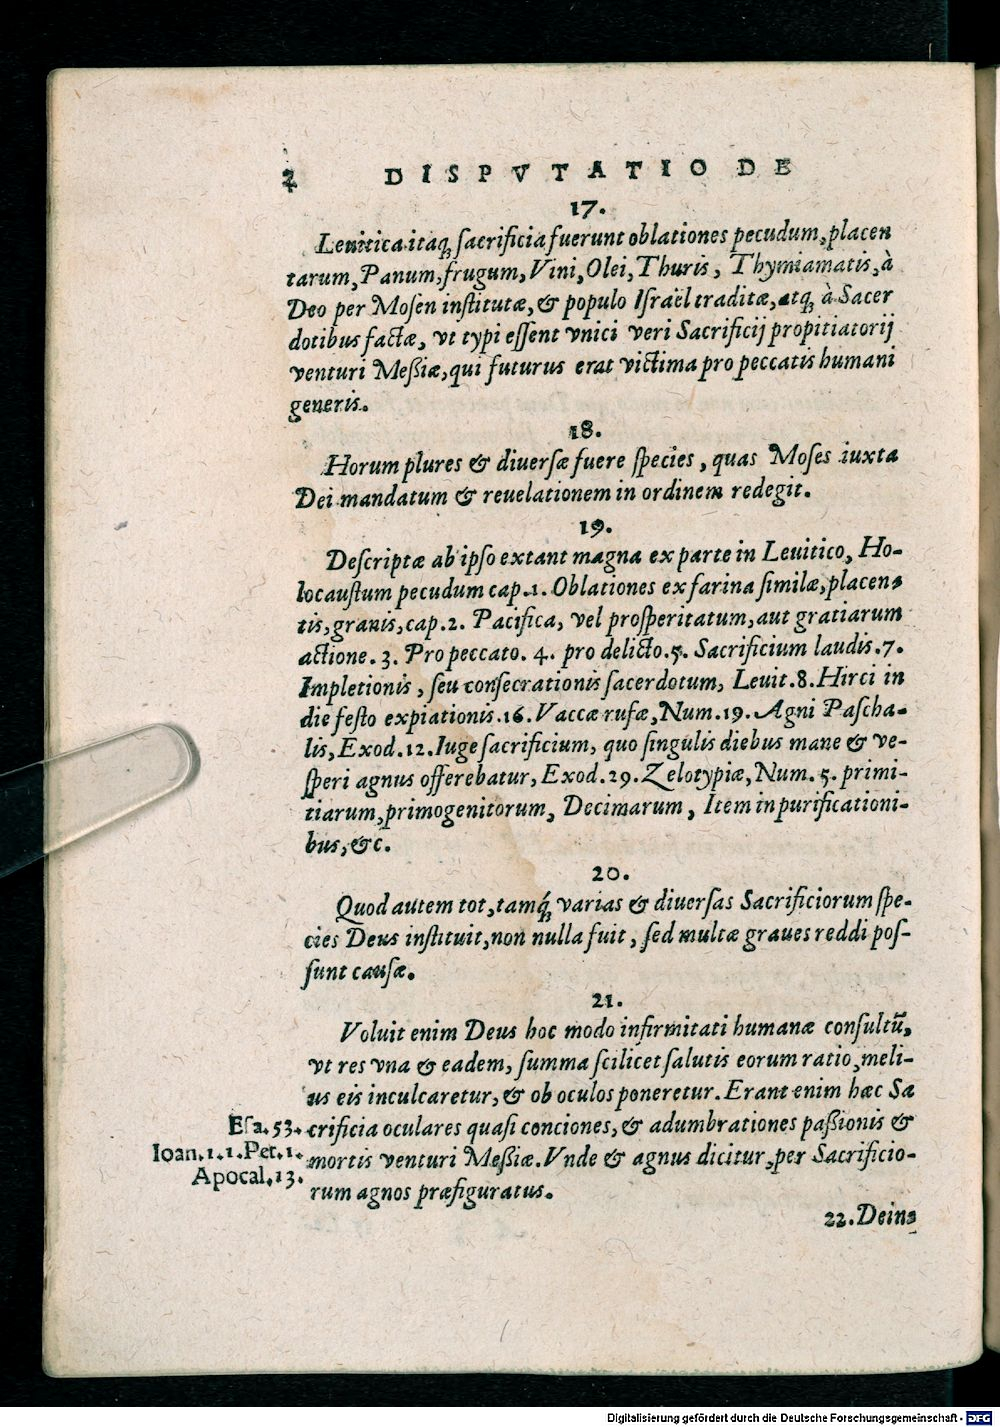 2 DISPVTATIO DE
17.
Leuitica itaq; sacrificia fuerunt oblationes pecudum, placen
tarum, Panum, frugum, Vini, Olei, Thuris, Thymiamatis, à
Deo per Mosen institutæ, & populo Israël traditæ, atq; à Sacer
dotibus factæ, vt typi essent vnici veri Sacrificij propitiatorij
venturi Meßiæ, qui futurus erat victima pro peccatis humani
generis.
18.
Horum plures & diuersæ fuere species, quas Moses iuxta
Dei mandatum & reuelationem in ordinem redegit.
19.
Descriptæ ab ipso extant magna ex parte in Leuitico, Ho-
locaustum pecudum cap.1. Oblationes ex farina similæ, placen-
tis, granis, cap.2. Pacifica, vel prosperitatum, aut gratiarum
actione. 3. Pro peccato. 4. pro delicto. 5. Sacrificium laudis. 7.
Impletionis, seu consecrationis sacerdotum, Leuit. 8. Hirci in
die festo expiationis. 16. Vaccæ rufæ, Num. 19. Agni Pascha-
lis, Exod. 12. Iuge sacrificium, quo singulis diebus mane & ve-
speri agnus offerebatur, Exod. 29. Zelotypiæ, Num. 5. primi-
tiarum, primogenitorum, Decimarum, Item in purificationi-
bus, &c.
20.
Quod autem tot, tamq́; varias & diuersas Sacrificiorum spe-
cies Deus instituit, non nulla fuit, sed multæ graues reddi pos-
sunt causæ.
21.
Voluit enim Deus hoc modo infirmitati humanæ consultū,
vt res vna & eadem, summa scilicet salutis eorum ratio, meli-
us eis inculcaretur, & ob oculos poneretur. Erant enim hæc Sa
crificia oculares quasi conciones, & adumbrationes paßionis &
mortis venturi Meßiæ. Vnde & agnus dicitur, per Sacrificio-
rum agnos præfiguratus.
Esa. 53.
Ioan. 1. 1. Pet. 1.
Apocal. 13.
22. Dein-
Digitalisierung gefördert durch die Deutsche Forschungsgemeinschaft - DFG